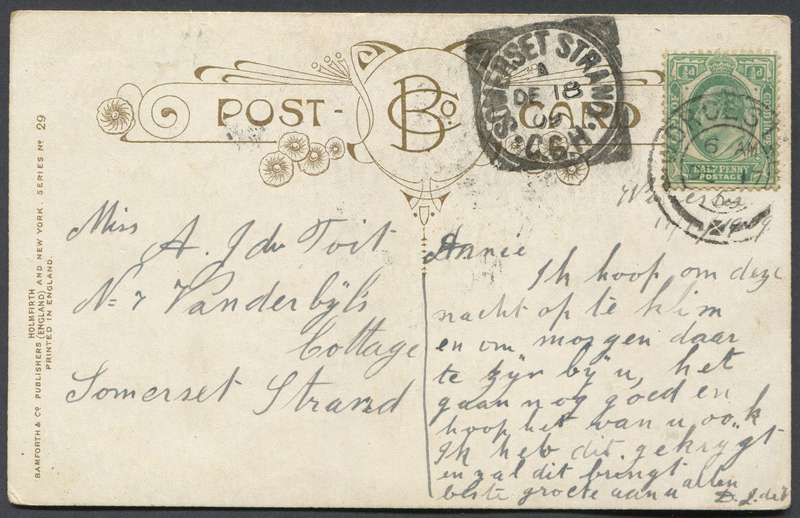 POST- B Co. CARD
SOMERSET STRAND.
A
DE 18
09
C.G.H.
½d ½d
HALFPENNY
POSTAGE
WORCESTER
6 AM
17
Miss
A. J du Toit
No 7 Vanderbyls
Cottage
Somerset Strand
Annie
Ik hoop om deze
nacht op te klim
en om morgen daar
te zyn by u, het
gaan nog goed en
hoop het van u ook
Ik heb dit gekrygt
en zal dit brengt allen
beste groete aan u
BAMFORTH & CO PUBLISHERS (ENGLAND) AND NEW YORK. SERIES No 29
HOLMFIRTH
PRINTED IN ENGLAND.